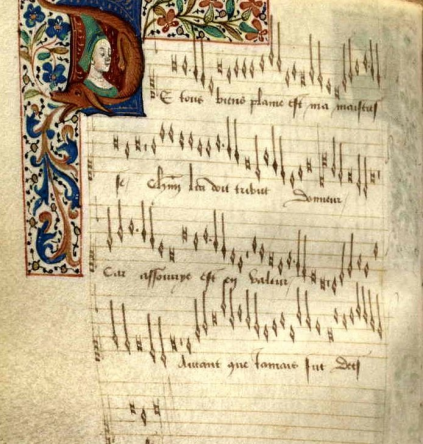 DE tous biens plaine est ma maistres
se Chun lui doit tribut donneur
Car assouvye est en valeur
Autant que iamais fut dees